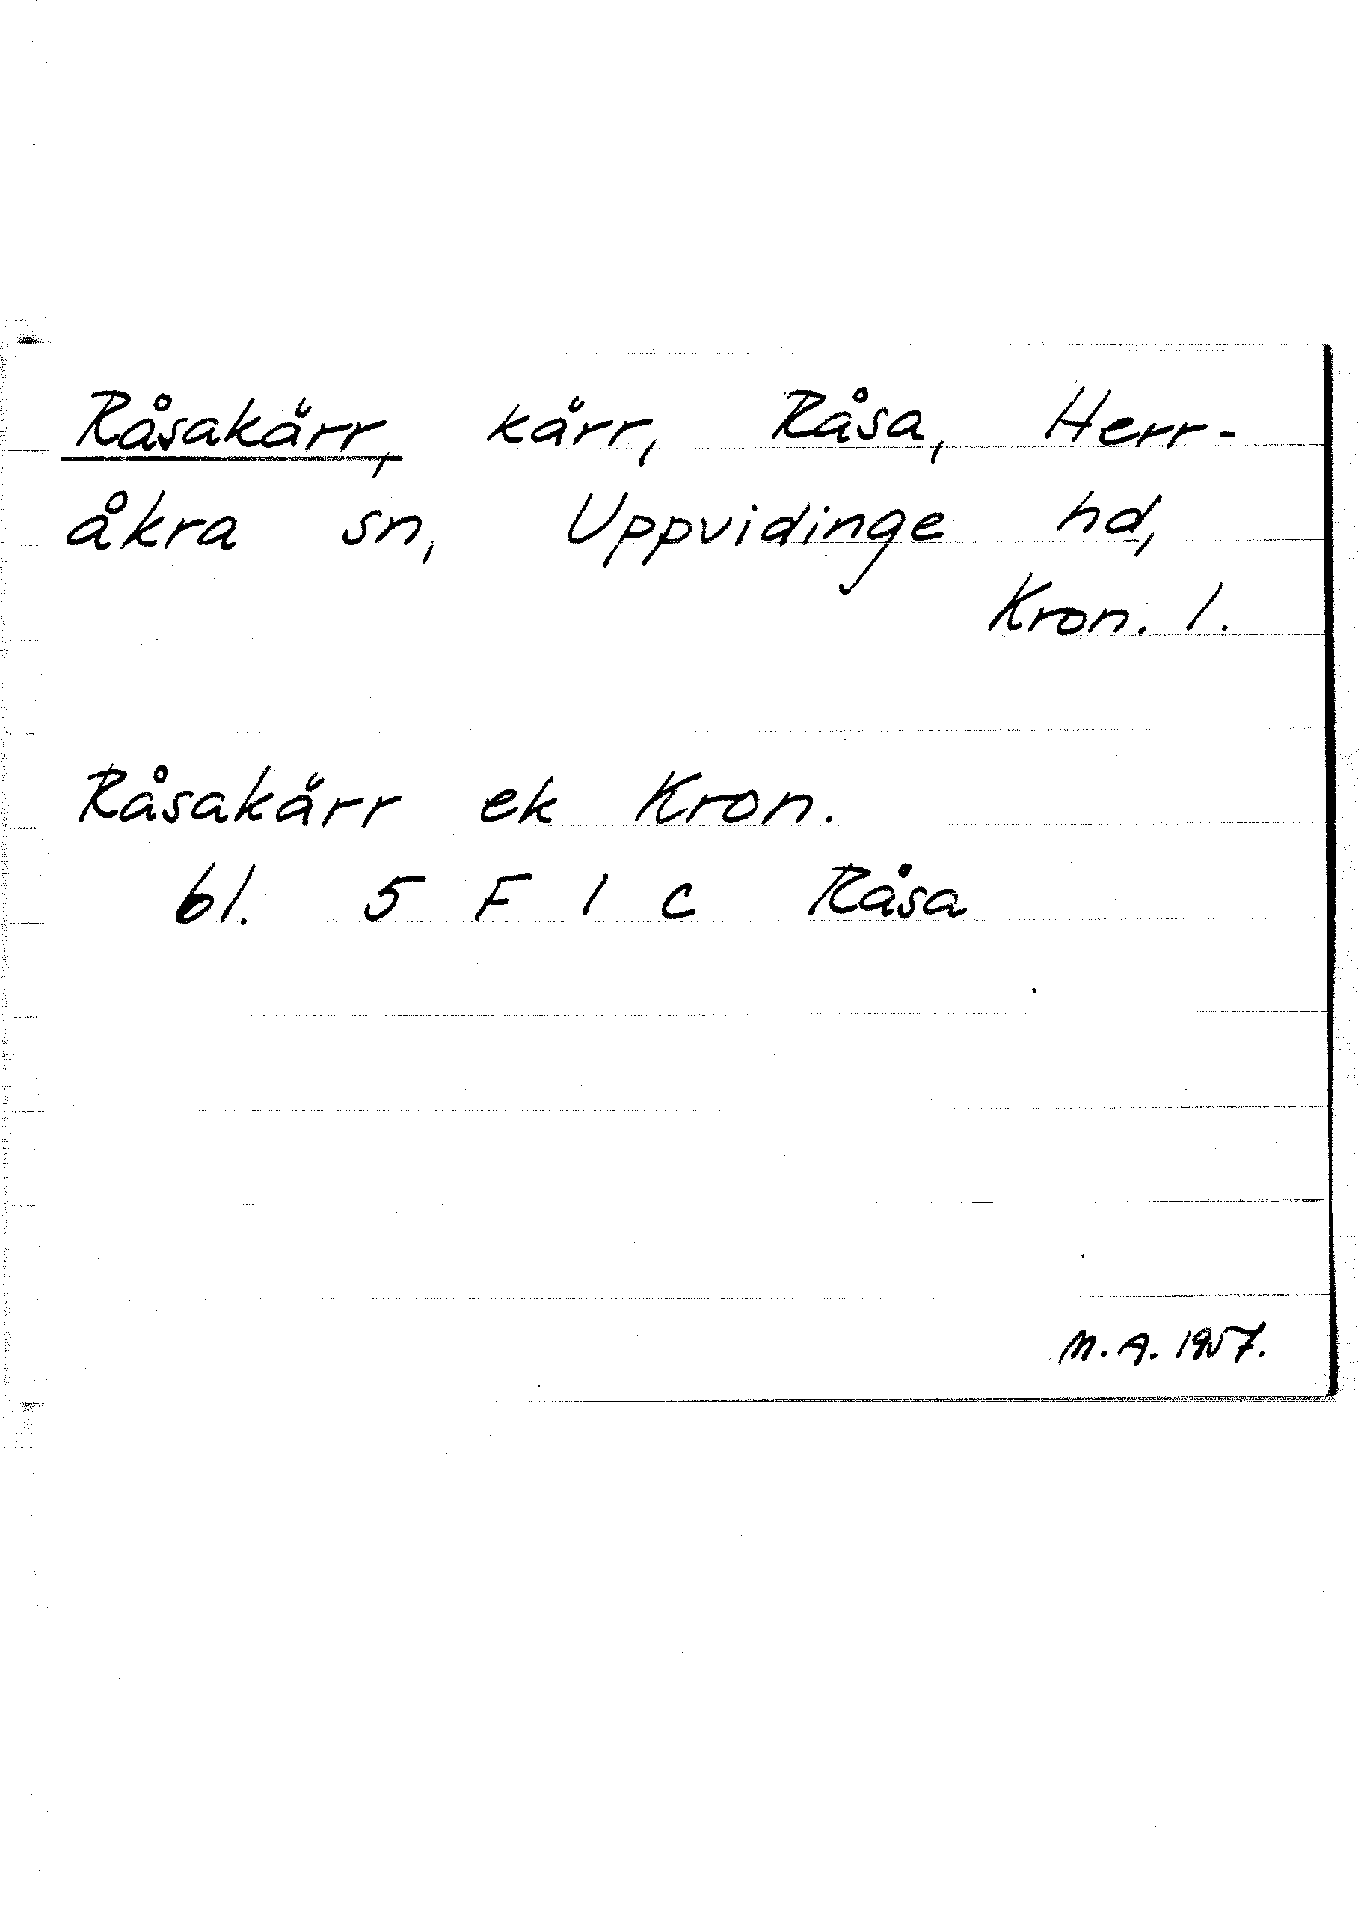 Råsakärr, kärr, Råsa, Herr-
åkra sn, Uppvidinge hd,
Kron. l.
Råsakärr ek Kron.
bl. 5 F 1 c Råsa
M. A. 1957.